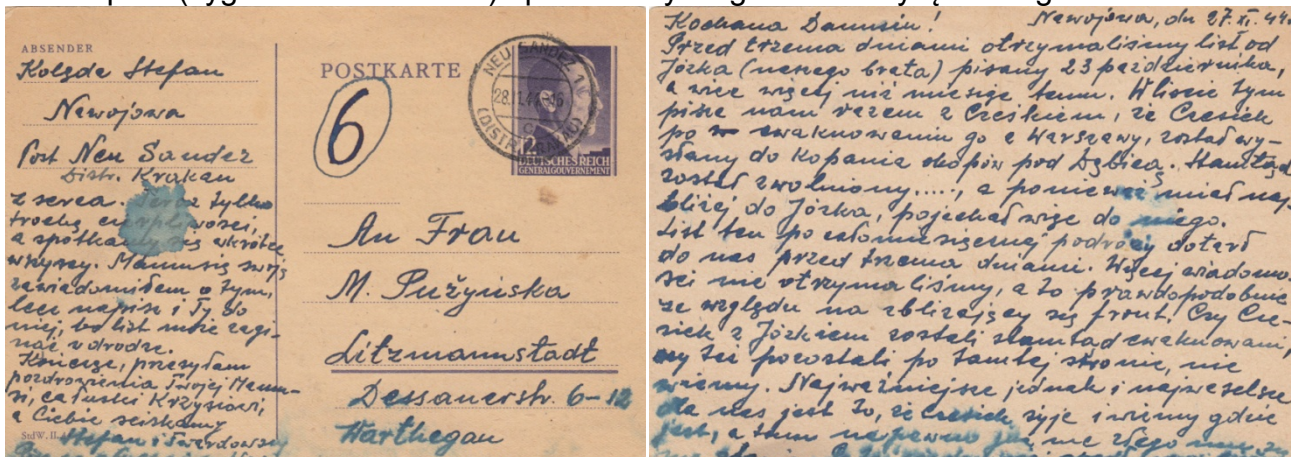 ABSENDER
Kolgde Stefan
Nawojowa
Post Neu Sandez
Distr. Krakau
z serca. Teraz tylko
trochę cierpliwości,
a spotkamy się wkrótce
wszyscy. Mamusię swoją
zawiadomiłem o tym,
lecz napisz i Ty do
niej, bo list może zagi-
nąć w drodze.
Kończąc, przesyłam
pozdrowienia Twojej Mamu-
si, całuski Krzysiowi,
a Ciebie ściskamy
StdW. II
Stefan i Twardowscy
POSTKARTE
6
NEU SANDEZ 1
28.11.44
c
(DISTR. KRAKAU)
12
DEUTSCHES REICH
GENERALGOUVERNEMENT
An Frau
M. Pużyńska
Litzmannstadt
Dessauerstr. 6-12
Warthegau
Kochana Danusiu! Nawojowa, dn 27.XI.44
Przed trzema dniami otrzymaliśmy list od
Józka (naszego brata) pisany 23 października,
a więc więcej niż miesiąc temu. W liście tym
pisze nam razem z Cześkiem, że Czesiek
po ewakuowaniu go z Warszawy, został wy-
słany do kopania okopów pod Dębicą. Stamtąd
został zwolniony....., a ponieważ miał naj-
bliżej do Józka, pojechał więc do niego.
List ten po całomiesięcznej podróży dotarł
do nas przed trzema dniami. Więcej wiadomo-
ści nie otrzymaliśmy, a to prawdopodobnie
ze względu na zbliżający się front. Czy Cze-
siek z Józkiem zostali stamtąd ewakuowani,
czy też pozostali po tamtej stronie, nie
wiemy. Najważniejsze jednak i najweselsze
dla nas jest to, że Czesiek żyje i wiemy gdzie
jest, a tam napewno już nic złego mu